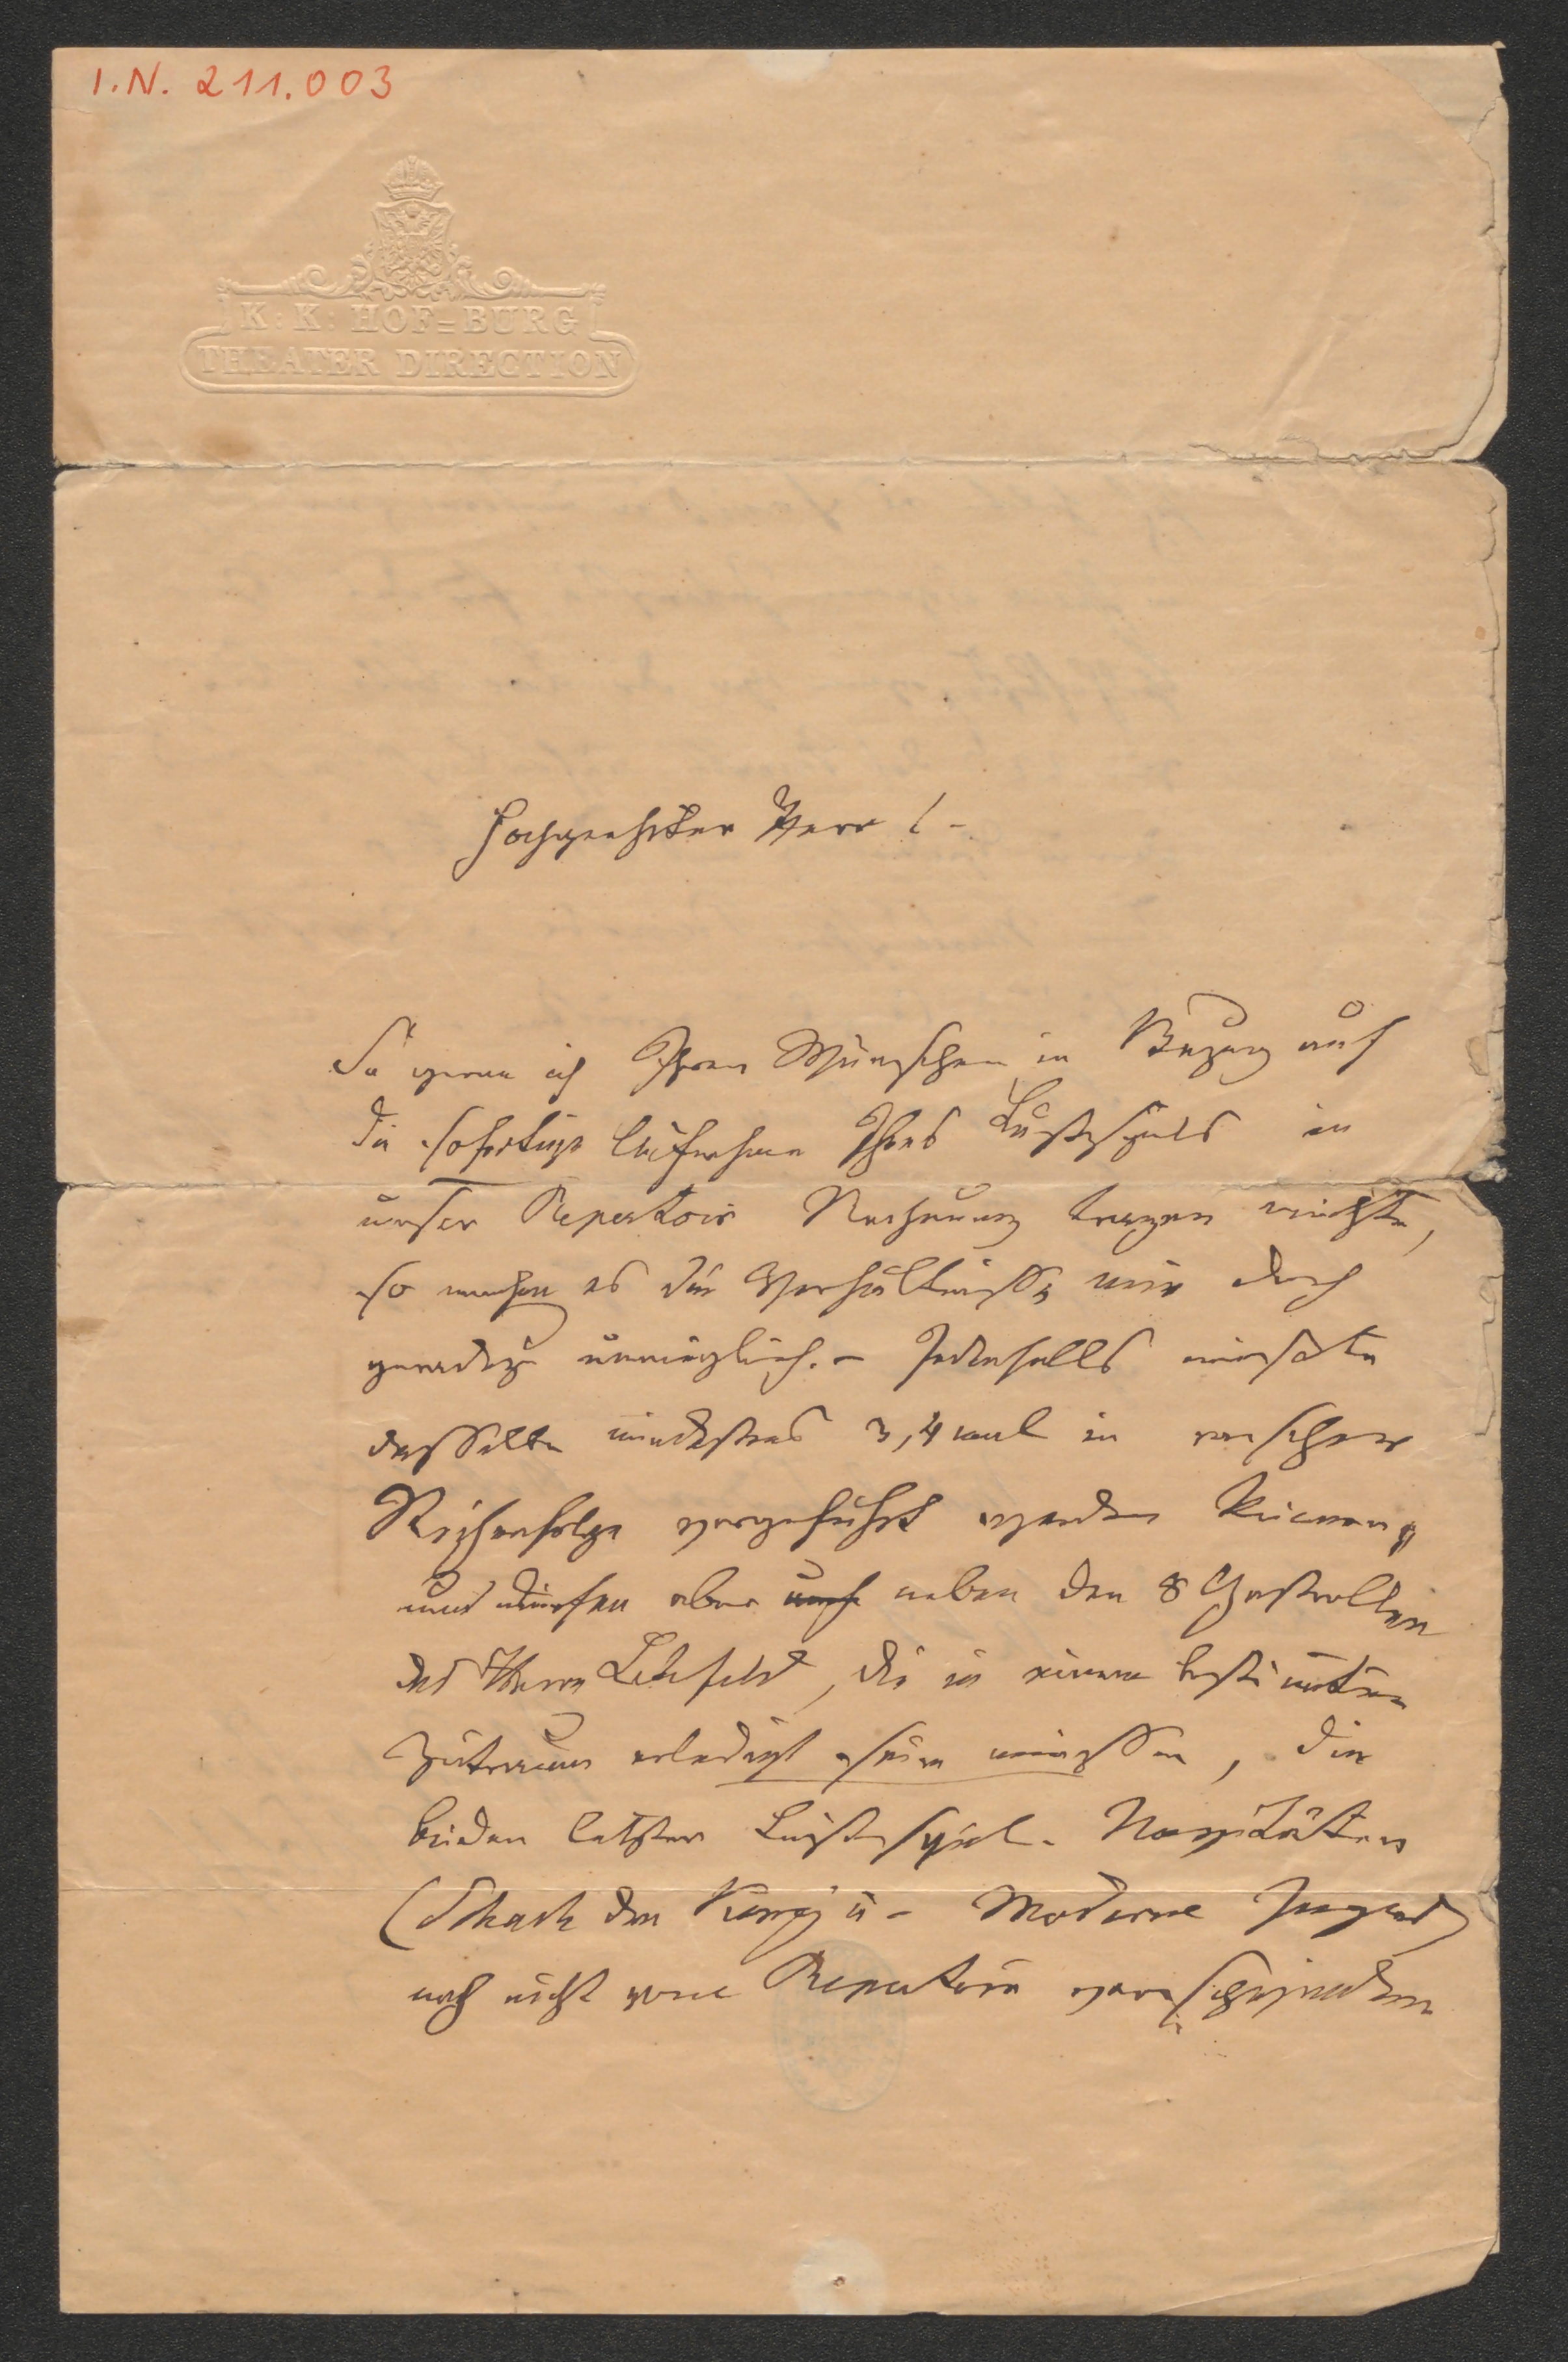 I.N. 211.003
K: K: HOF=BURG
THEATER DIRECTION
Hochgeehrter Herr! –
So gerne ich Ihren Wünschen in Bezug auf
die sofortige Aufnahme Ihres Lustspiels in
unser Repertoir Rechnung tragen möchte,
so machen es die Verhältnisse mir doch
geradezu unmöglich. – Jedenfalls müßte
dasselbe mindestens 3, 4 mal in rascher
Reihenfolge vorgeführt werden können,
und dürfen aber neben den 8 Gastrollen
des Herrn Lehfeld, die in einem bestimten
Zeitraum erledigt sein müssen, die
beiden letzten Lustspiel-Novitäten
(Schach dem König u – Moderne Jugend)
noch nicht vom Repertoir verschwinden